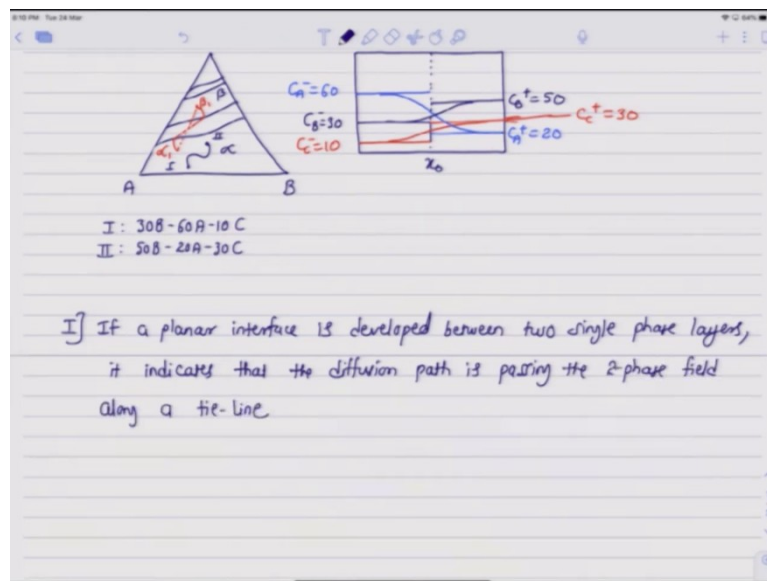 8:10 PM Tue 24 Mar
64%
T
C_A^- = 60
C_B^- = 30
C_C^- = 10
C_B^+ = 50
C_C^+ = 30
C_A^+ = 20
x₀
β
β₁
α₁
α
I
II
A
B
I : 30B - 60A - 10C
II : 50B - 20A - 30C
I] If a planar interface is developed between two single phase layers,
it indicates that the diffusion path is passing the 2-phase field
along a tie-line